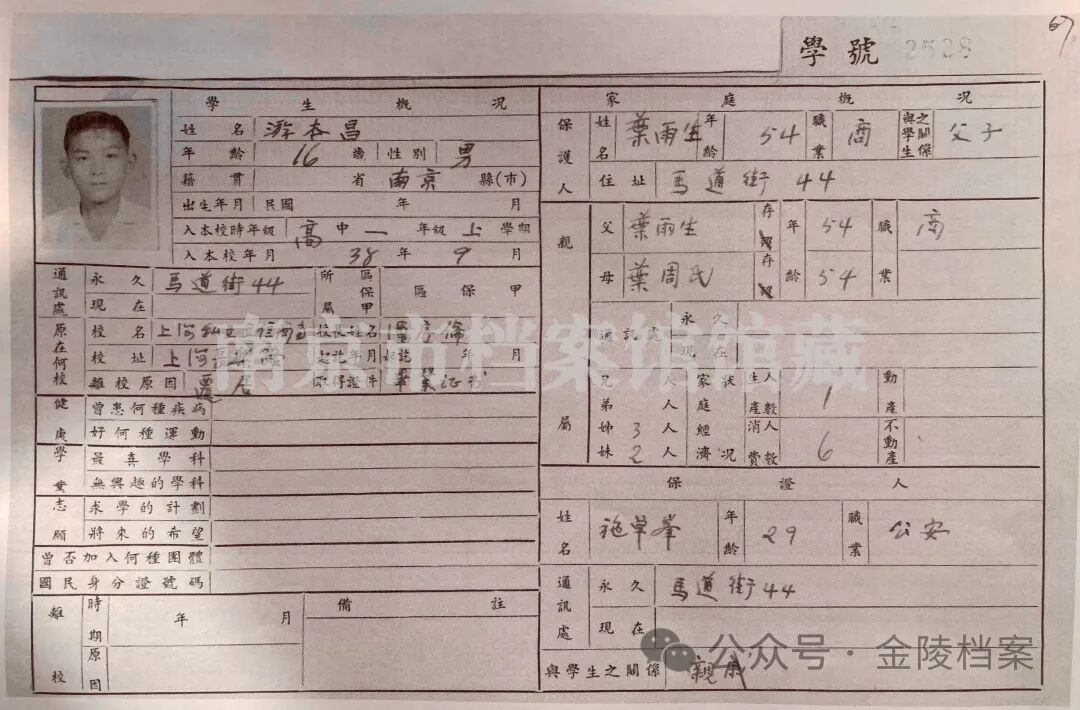 67
學號 2528
學生概況
姓名 游本昌
年齡 16 歲 性別 男
籍貫 省 南京 縣(市)
出生年月 民國 年 月
入本校時年級 高中一年級上學期
入本校年月 38年9月
通訊處 永久 馬道街44 所屬 區保甲 區保甲
現在
原在何校 校名 上海私立 校長姓名
校址 上海 起訖年月 起訖 年 月
離校原因 遷居 取得證件 畢業证书
健康 曾患何種疾病
好何種運動
學業 最喜學科
無興趣的學科
志願 求學的計劃
將來的希望
曾否加入何種團體
國民身分證號碼
離校 時期 年 月
原因
備註
家庭概況
保護人 姓名 葉雨生 年齡 54 職業 商 與學生之關係 父子
住址 馬道街44
親屬 父 葉雨生 存 年齡 54 職業 商
母 葉周氏 存 54
通訊處 永久
現在
兄 人 家庭經濟狀況 生產人數 1 動產
弟 人
姊 3人 消費人數 6 不動產
妹 2人
保證人
姓名 施學峯 年齡 29 職業 公安
通訊處 永久 馬道街44
現在
與學生之關係 親戚
南京市档案馆馆藏
公众号·金陵档案